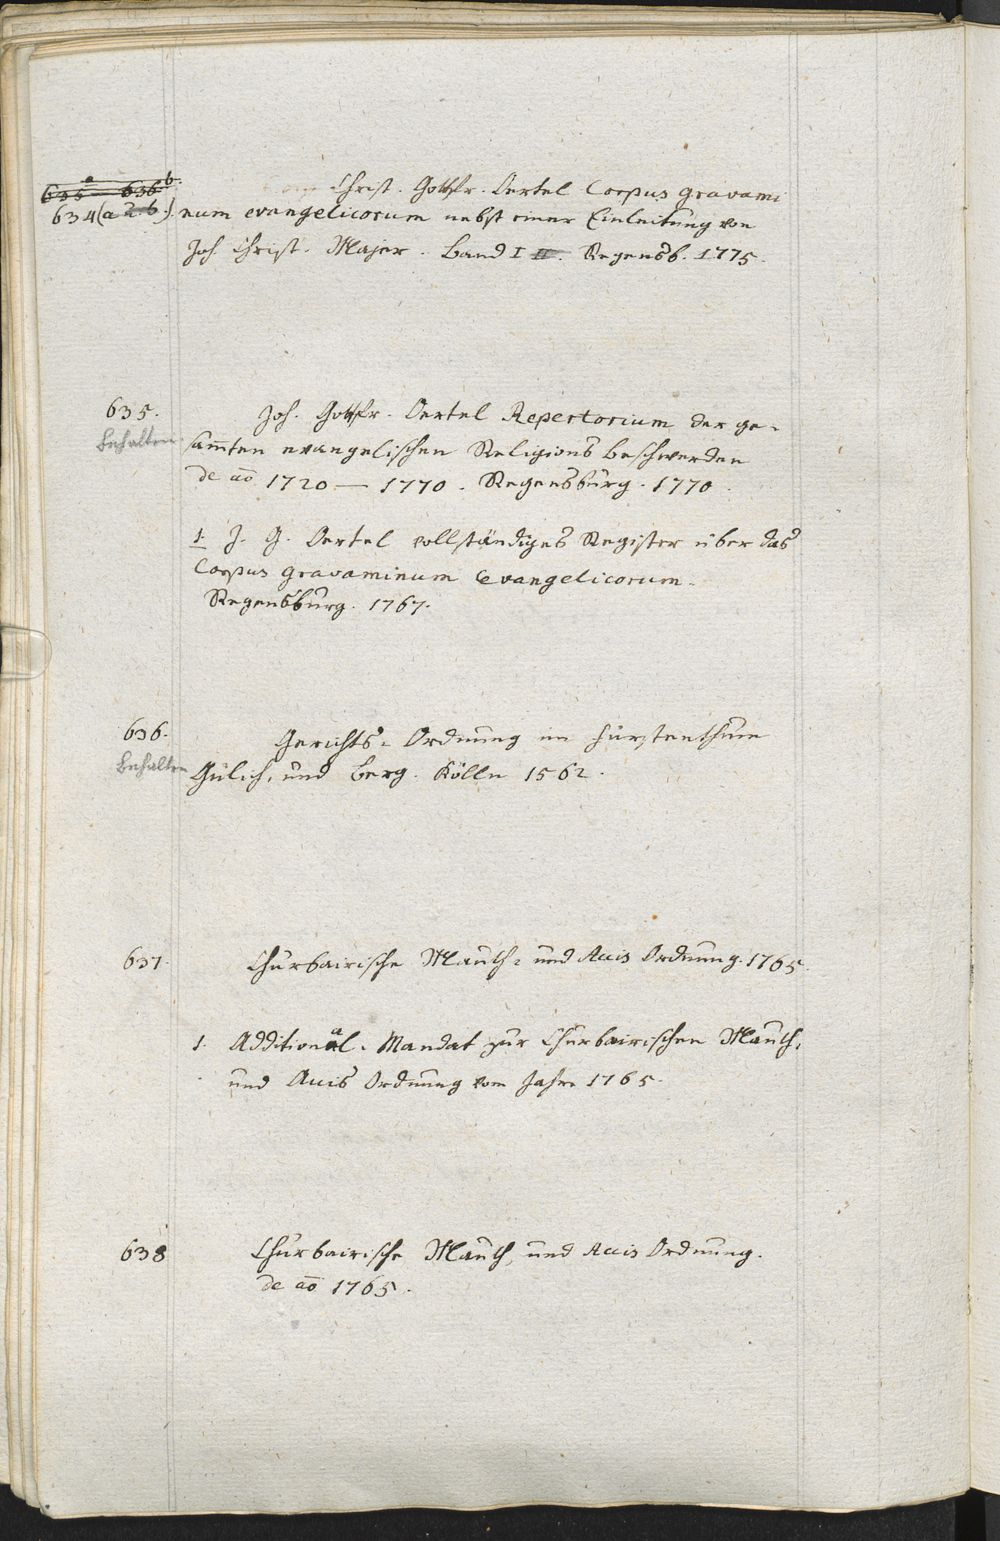 635 a 636 b.
634 (a 2. b.)
Christ. Gottfr. Oertel Corpus gravami
num evangelicorum nebst einer Einleitung von
Joh. Christ. Majer. Band I II. Regensb. 1775.
635.
Behalten.
Joh. Gottfr. Oertel Repertorium der ge-
samten evangelischen Religions Beschwerden
de ao 1720 — 1770. Regensburg. 1770.
1. J. G. Oertel vollständiges Register über das
Corpus gravaminum Evangelicorum.
Regensburg. 1767.
636.
Behalten
Gerichts-Ordnung im Fürstenthum
Gülich, und Berg. Kölln 1562.
637.
Churbairische Mauth- und Accis Ordnung. 1765.
1. Additional-Mandat zur Churbairischen Mauth-
und Accis Ordnung vom Jahre 1765.
638
Churbairische Mauth, und Accis Ordnung.
de ao 1765.